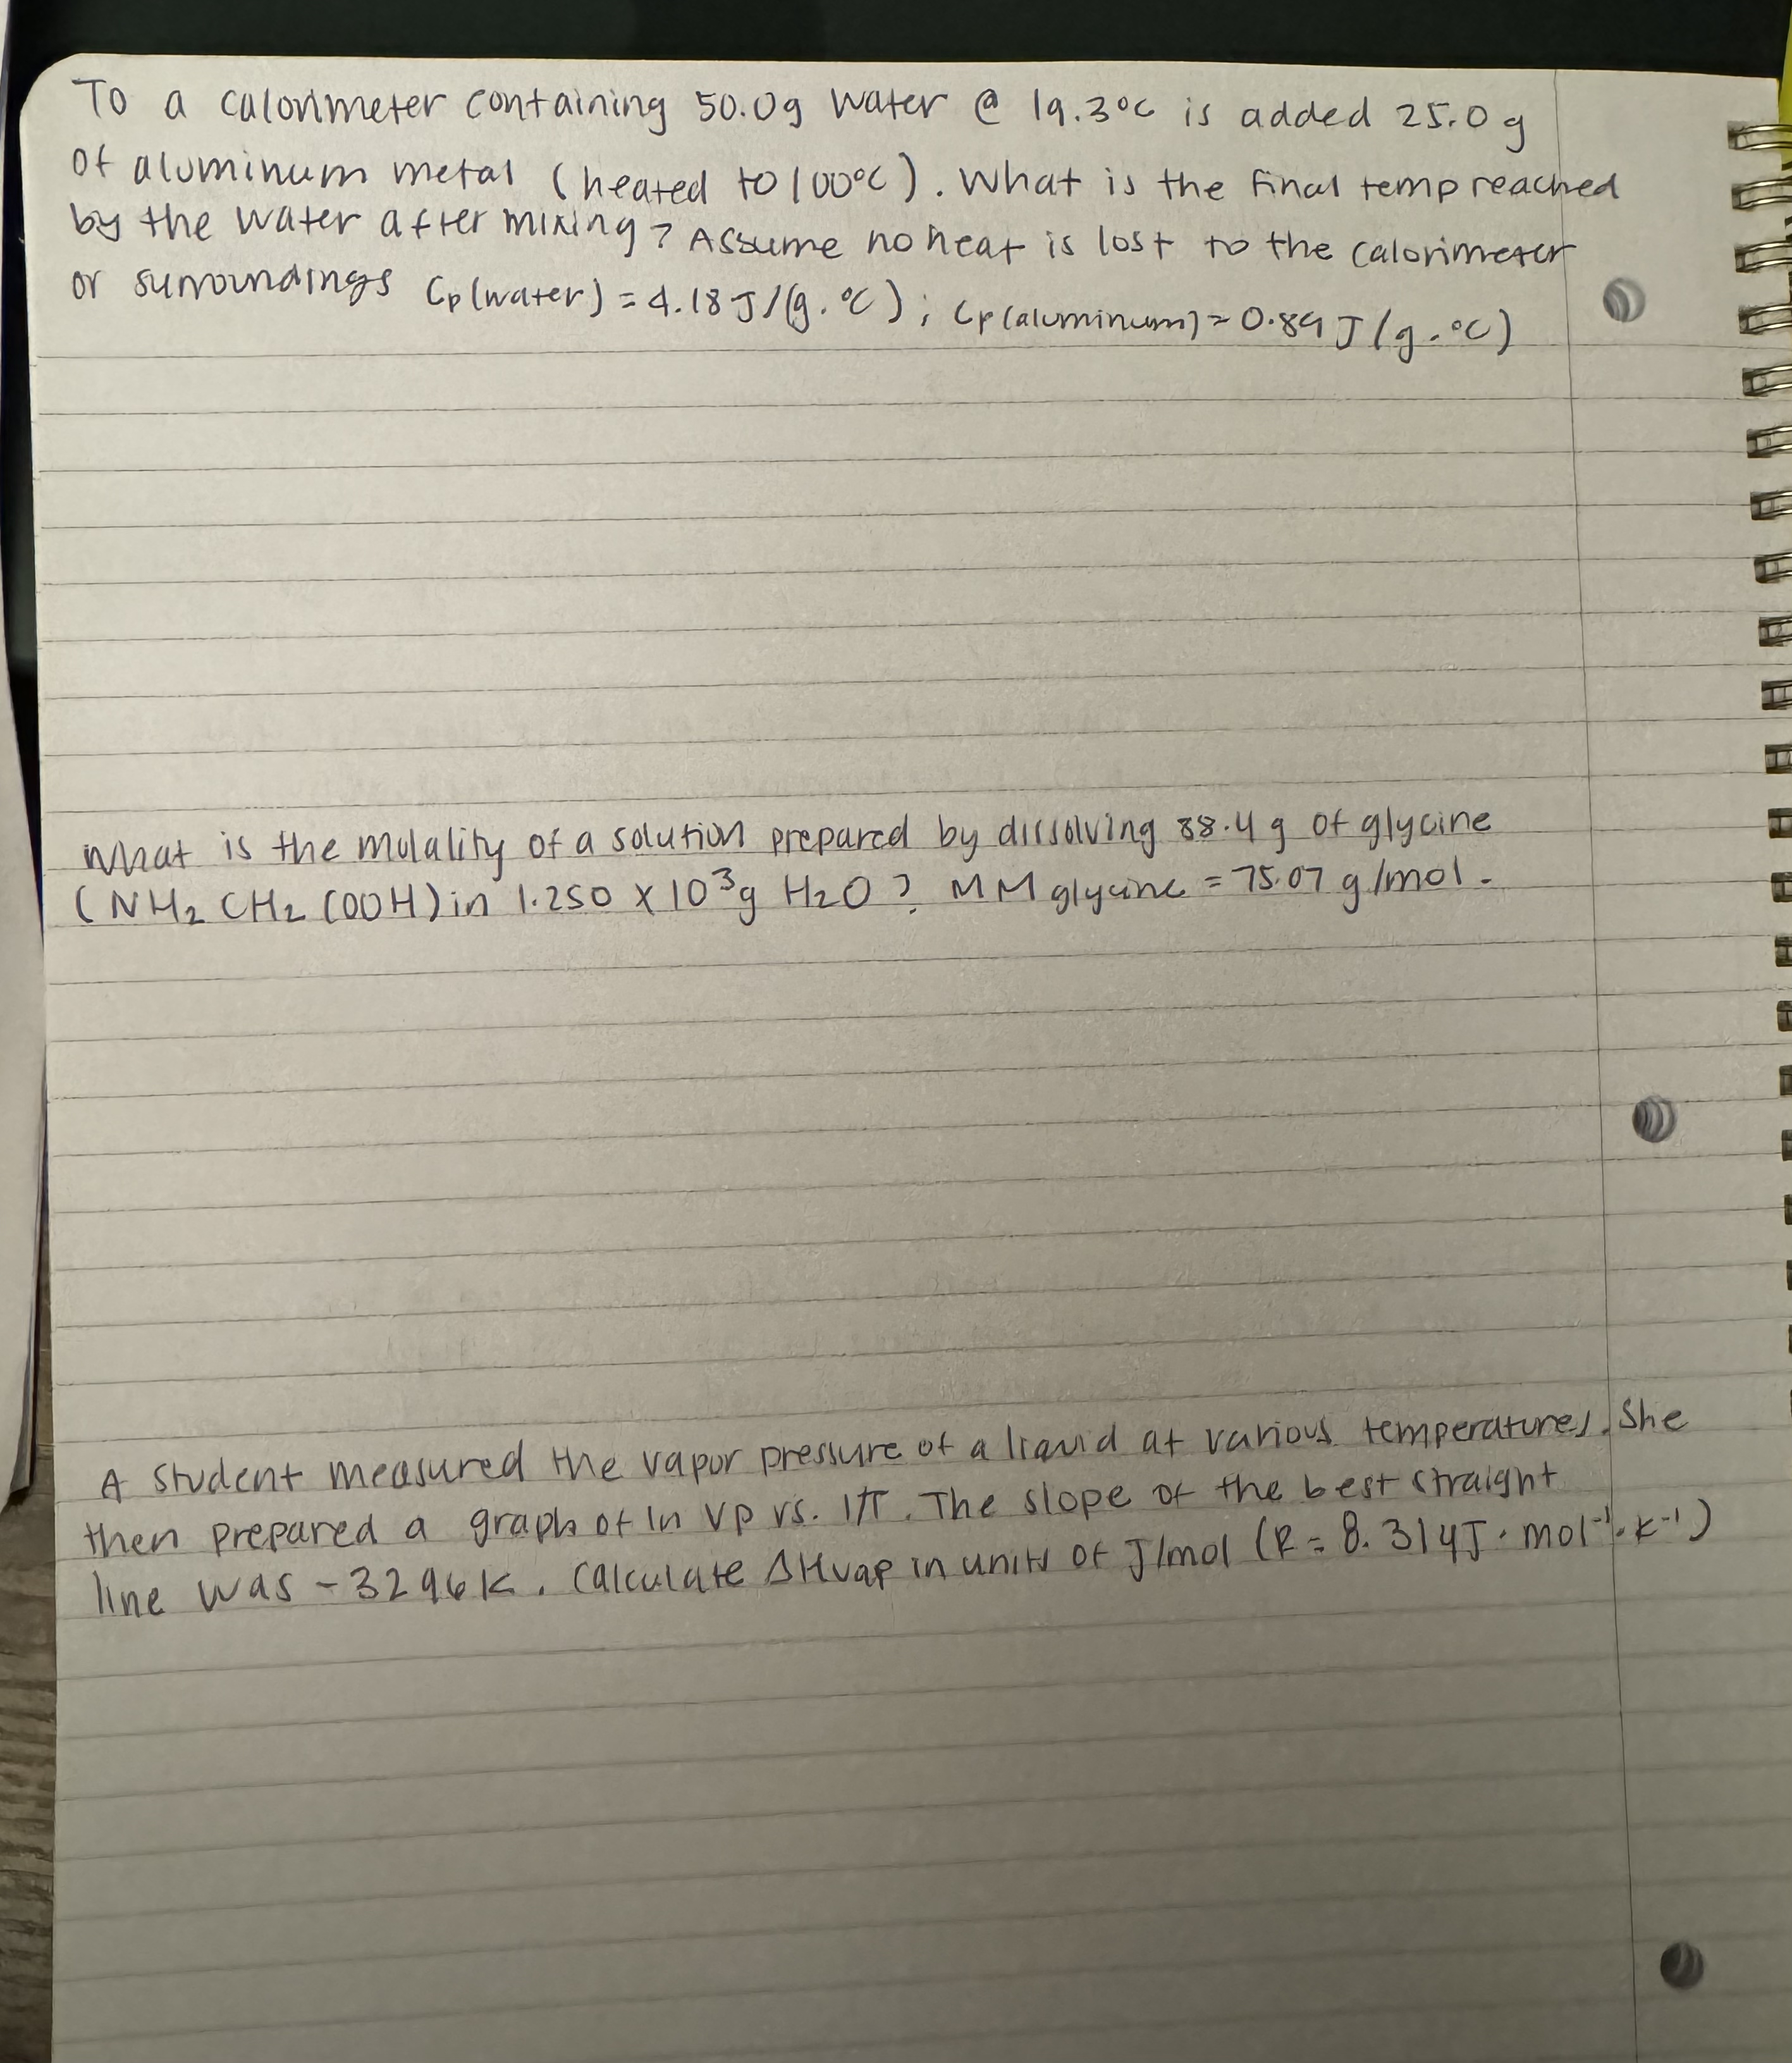 To a calorimeter containing 50.0g water @ 19.3°C is added 25.0 g
of aluminum metal (heated to 100°C). What is the final temp reached
by the water after mixing? Assume no heat is lost to the calorimeter
or surroundings Cp(water) = 4.18 J/(g.°C); Cp(aluminum) = 0.89 J/g.°C)
What is the molality of a solution prepared by dissolving 88.4 g of glycine
(NH₂ CH₂ COOH) in 1.250 x 10³g H₂O? MM glycine = 75.07 g/mol.
A student measured the vapor pressure of a liquid at various temperatures. She
then prepared a graph of ln VP vs. 1/T. The slope of the best straight
line was -3296K. Calculate ΔHvap in units of J/mol (R = 8.314J · mol⁻¹·K⁻¹)